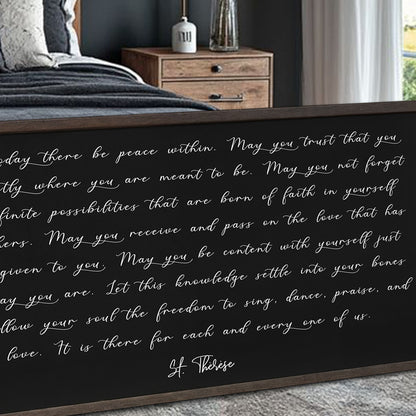 oday there be peace within. May you trust that you
tly where you are meant to be. May you not forget
finite possibilities that are born of faith in yourself
hers. May you receive and pass on the love that has
given to you. May you be content with yourself just
ay you are. Let this knowledge settle into your bones
llow your soul the freedom to sing, dance, praise, and
love. It is there for each and every one of us.
St. Thérèse